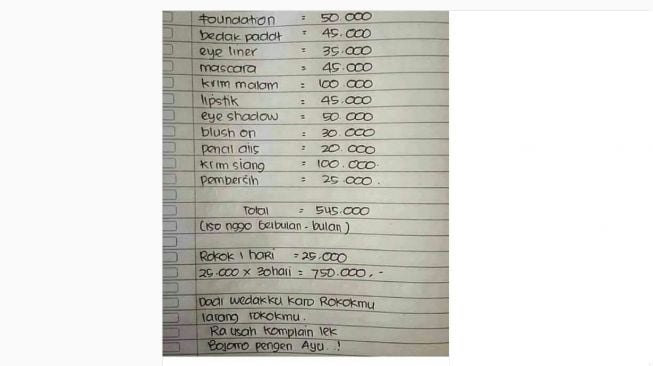 foundation = 50.000
bedak padat = 45.000
eye liner = 35.000
mascara = 45.000
krim malam = 100.000
lipstik = 45.000
eye shadow = 50.000
blush on = 30.000
pencil alis = 20.000
krim siang = 100.000.
pembersih = 25.000.
Total = 545.000
(iso nggo berbulan-bulan)
Rokok 1 hari = 25.000
25.000 x 30hari = 750.000,-
Dadi wedakku karo Rokokmu
larang rokokmu.
Ra usah komplain lek
Bojomu pengen Ayu..!